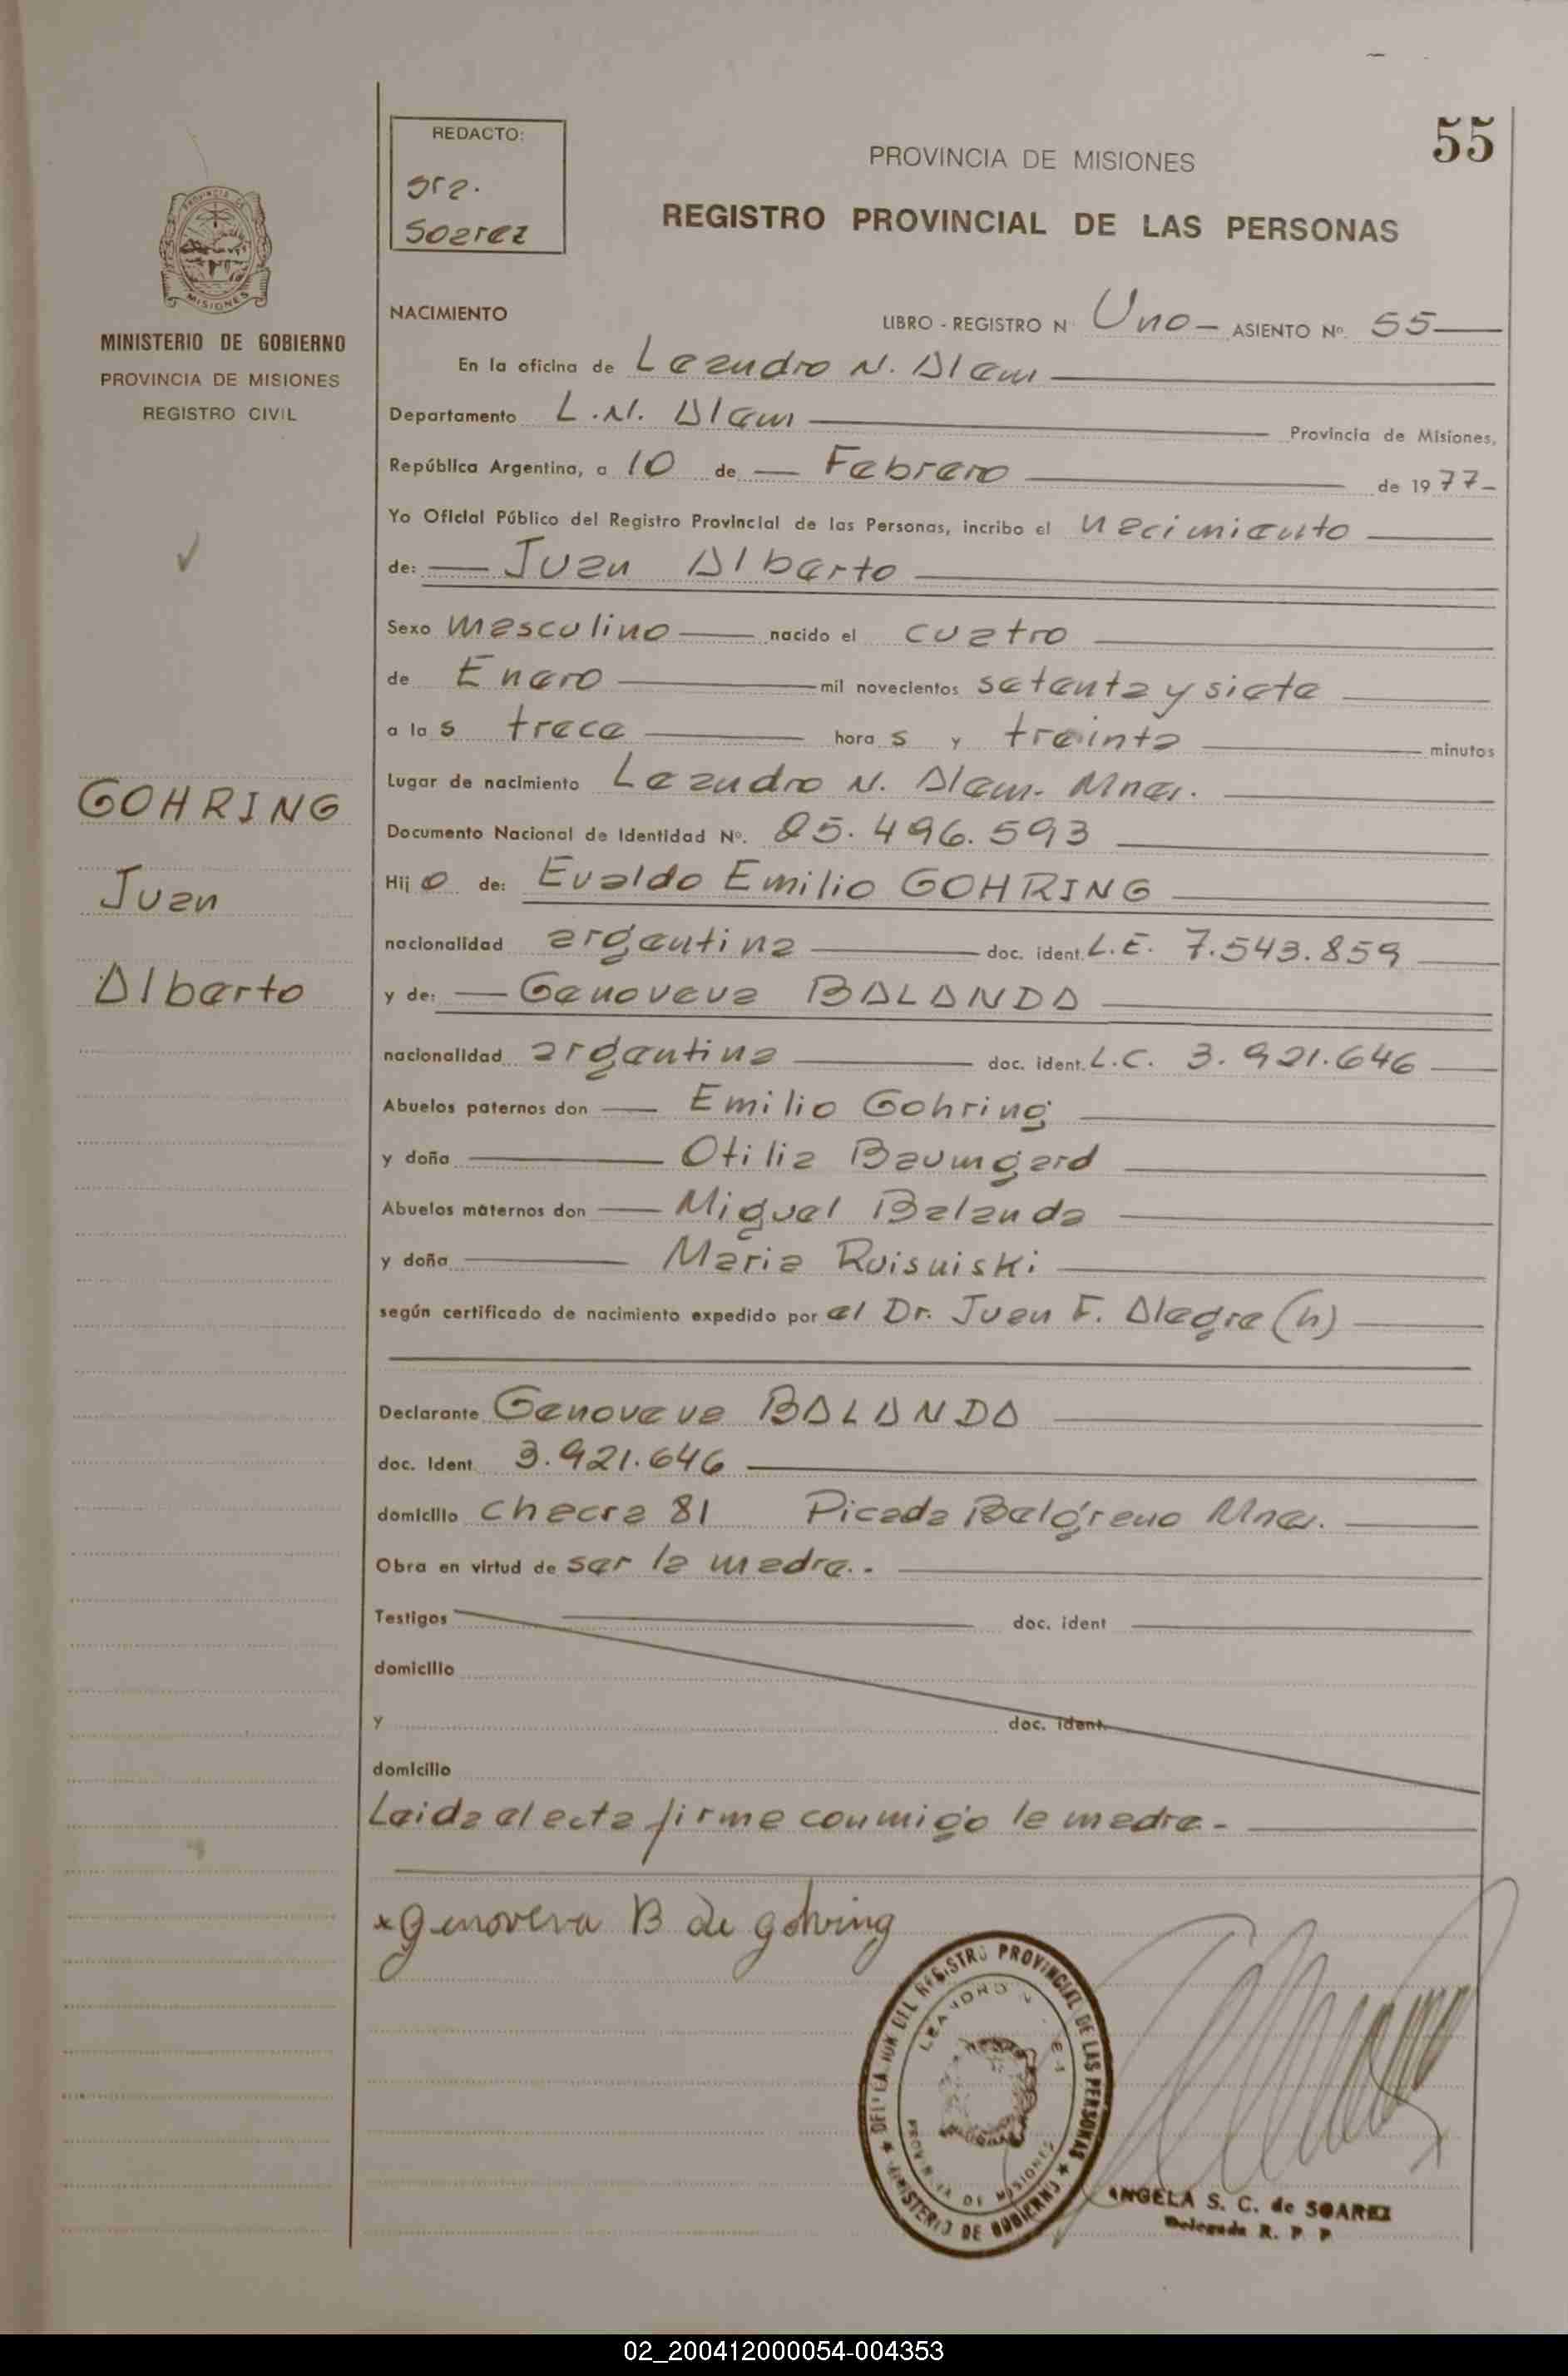 55
REDACTO:
Sra.
Soarez
PROVINCIA DE MISIONES
REGISTRO PROVINCIAL DE LAS PERSONAS
PROVINCIA DE
MISIONES
MINISTERIO DE GOBIERNO
PROVINCIA DE MISIONES
REGISTRO CIVIL
NACIMIENTO
LIBRO - REGISTRO N Uno - ASIENTO Nº. 55
En la oficina de Leandro N. Alem
Departamento L. N. Alem Provincia de Misiones,
República Argentina, a 10 de Febrero de 1977-
Yo Oficial Público del Registro Provincial de las Personas, incribo el nacimiento
de: Juan Alberto
Sexo masculino nacido el cuatro
de Enero mil novecientos setenta y siete
a las trece horas y treinta minutos
Lugar de nacimiento Leandro N. Alem- Mnes.
Documento Nacional de Identidad Nº. 25.496.593
Hijo de: Evaldo Emilio GOHRING
nacionalidad argentina doc. ident. L.E. 7.543.859
y de: Genoveva BALANDA
nacionalidad argentina doc. ident. L.C. 3.921.646
Abuelos paternos don Emilio Gohring
y doña Otilia Baumgard
Abuelos maternos don Miguel Balanda
y doña Maria Ruisuiski
según certificado de nacimiento expedido por el Dr. Juan F. Alegre (h)
Declarante Genoveva BALANDA
doc. Ident. 3.921.646
domicilio chacra 81 Picada Belgrano Mnes.
Obra en virtud de ser la madre..
Testigos doc. ident
domicilio
y doc. ident.
domicilio
Leida el acta firma conmigo la madre-
x Genoveva B de gohring
GOHRING
Juan
Alberto
DELEGACION DEL REGISTRO PROVINCIAL DE LAS PERSONAS
MINISTERIO DE GOBIERNO
LEANDRO N.
PROVINCIA DE MISIONES
ANGELA S. C. de SOAREZ
Delegada R. P. P.
02_200412000054-004353